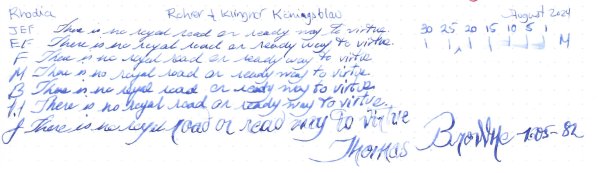 Rhodia Rohrer & Klingner Königsblau August 2024
JEF There is no royal road or ready way to virtue. 30 25 20 15 10 5 1
EF There is no royal road or ready way to virtue. M
F There is no royal road or ready way to virtue
M There is no royal road or ready way to virtue.
B There is no royal road or ready way to virtue.
1.1 There is no royal road or ready way to virtue.
There is no royal road or ready way to virtue
Thomas Browne -82